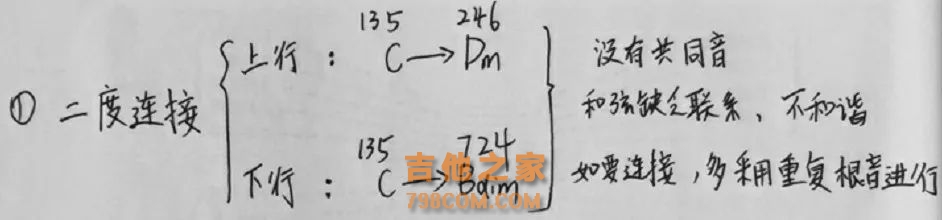 135 246
① 二度连接 上行： C→Dm 没有共同音
和弦缺乏联系、不和谐
135 724
下行： C→Bdim 如要连接，多采用重复根音进行
吉他之家
798COM.COM